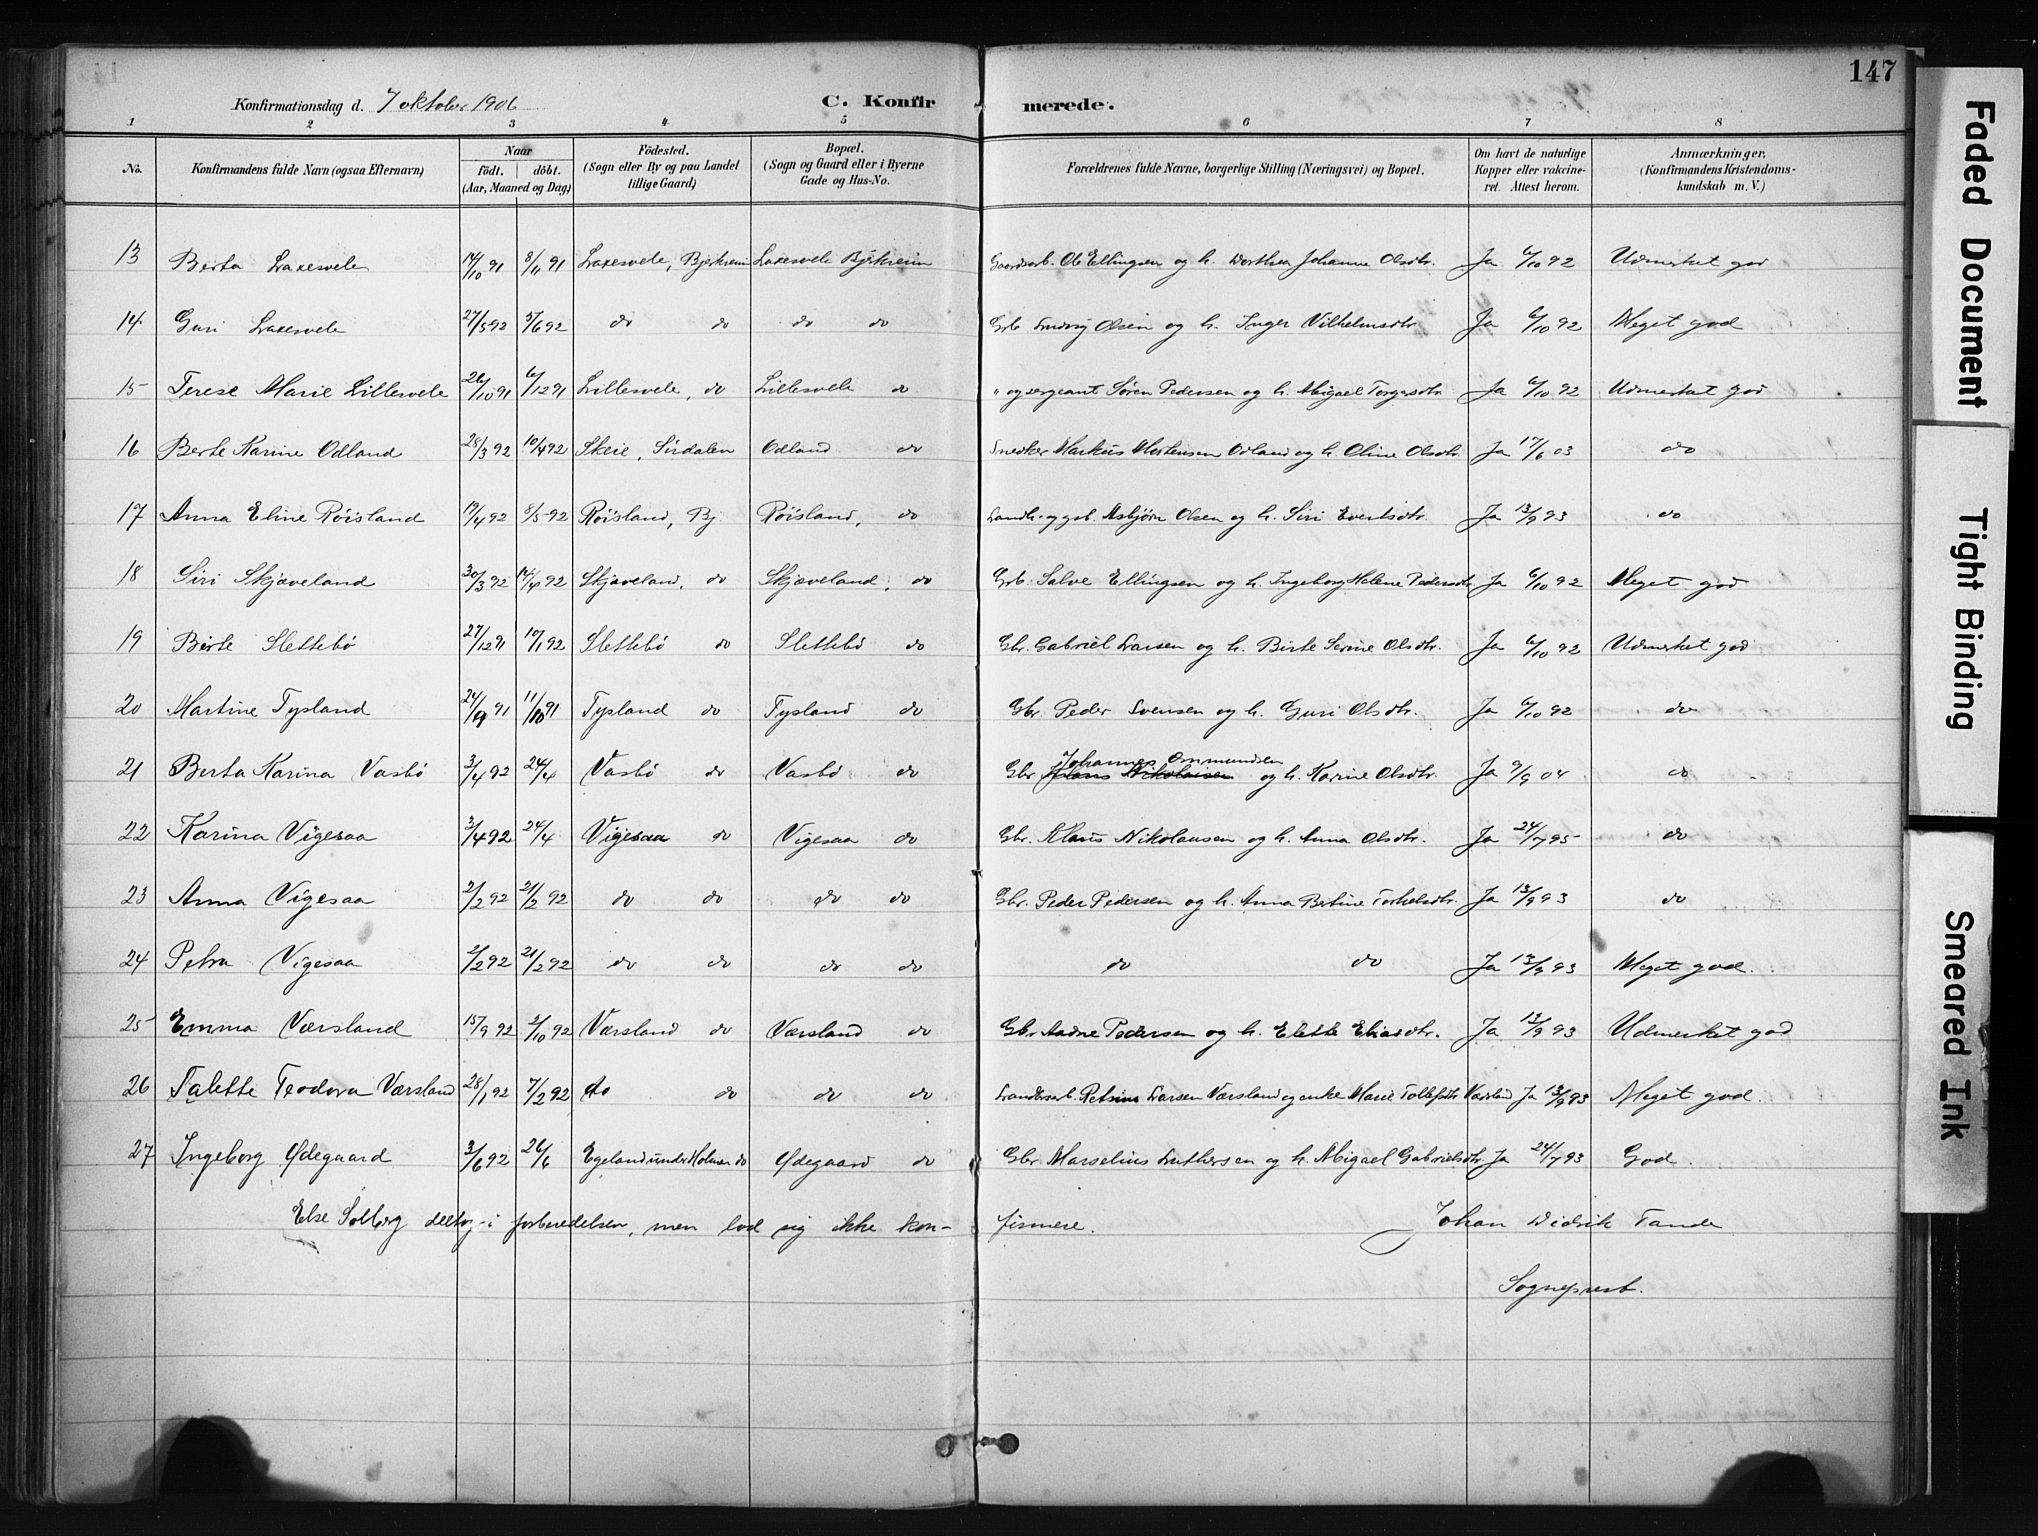 147
Konfirmationsdag d. 7 oktober 1906 C. Konfirmerede.
1 2 3 4 5 6 7 8
No. Konfirmandens fulde Navn (ogsaa Efternavn) Naar födt. döbt. (Aar, Maaned og Dag) Födested. (Sogn eller By og paa Landet tillige Gaard) Bopæl. (Sogn og Gaard eller i Byerne Gade og Hus-No. Forældrenes fulde Navne, borgerlige Stilling (Næringsvei) og Bopæl. Om havt de naturlige Kopper eller vakcineret. Attest herom. Anmærkninger. (Konfirmandens Kristendomskundskab m. V.)
13 Berta Laxesvele 14/10 91 8/11 91 Laxesvele, Bjerkreim Laxesvele Bjerkreim Gaardarb. Ole Ellingsen og h. Dorthea Johanne Olsdtr. Ja 6/10 92 Udmerket god
14. Guri Laxesvele 27/5 92 5/6 92 do do do do Grb Ludvig Olsen og h. Inger Vilhelmsdtr Ja 6/10 92 Meget god
15 Terese Marie Lillesvele 26/10 91 6/12 91 Lillesvele, do Lillesvele do " og sergeant Søren Pedersen og h. Abigael Torgersdtr. Ja 6/10 92 Udmerket god
16 Berte Karine Odland 28/3 92 10/4 92 Skeie, Sirdalen Odland do Snedker Markus Mortensen Odland og h. Oline Olsdtr. Ja 17/6 03 do
17 Anna Eline Røisland 19/4 92 8/5 92 Røisland, Bj. Røisland, do Asbjørn Olsen og h. Siri Evertsdtr. Ja 13/9 93 do
18 Siri Skjæveland 30/3 92 14/4 92 Skjæveland, do Skjæveland, do Grb. Salve Ellingsen og h. Ingeborg Helene Pedersdtr Ja 6/10 92 Meget god
19 Birte Slettebø 27/12 91 10/1 92 Slettebø do Slettebø do Gbr. Gabriel Larsen og h. Birte Serine Olsdtr. Ja 6/10 92 Udmerket god
20 Martine Tysland 24/9 91 11/10 91 Tysland do Tysland do Gbr. Peder Svensen og h. Guri Olsdtr. Ja 6/10 92 do
21 Berta Karina Vasbø 3/4 92 24/4 Vasbø do Vasbø do Gbr Johannes Ommundsen og h. Karine Olsdtr. Ja 9/9 04 do
22 Karina Vigesaa 3/4 92 24/4 Vigesaa do Vigesaa do Gbr. Klaus Nikolausen og h. Anna Olsdtr. Ja 24/7 95 do
23 Anna Vigesaa 2/2 92 21/2 92 do do do do Gbr. Peder Pedersen og h. Anna Bertine Torkelsdtr. Ja 13/9 93 do
24 Petra Vigesaa 2/2 92 21/2 92 do do do do do do Ja 13/9 93 Meget god.
25 Emma Værsland 15/9 92 2/10 92 Værsland do Værsland do Gbr Aadne Pedersen og h. Elette Eliasdtr. Ja 13/9 93 Udmerket god
26 Talette Teodora Værsland 28/1 92 7/2 92 do do do do Larsen Værsland og enke Marie Tollefsdtr Værsland Ja 13/9 93 Meget god.
27 Ingeborg Ødegaard 3/6 92 26/6 Egeland under Holmen do Ødegaard do Gbr Marselius Luthersen og h. Abigael Gabrielsdtr Ja 24/7 93 God.
Else Solberg deltog i forberedelsen, men lod sig ikke konfirmere. Johan Didrik Tande
Sogneprest.
Faded Document
Tight Binding
Smeared Ink